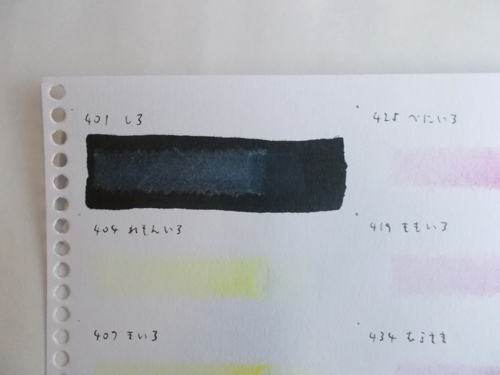 401 しろ
425 べにいろ
404 れもんいろ
419 ももいろ
407 きいろ
434 むらさき